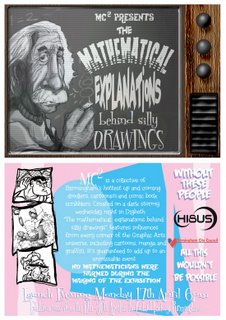 MC² PRESENTS
THE
MATHEMATICAL
EXPLANATIONS
behind silly
DRAWINGS
MC² is a collective of
Birmingham's hottest up and coming
doodlers, cartoonists and comic book
scribblers. Created on a dark stormy
wednesday night in Digbeth
"The mathematical explanations behind
silly drawings" features influences
from every corner of the Graphic Arts
universe. including cartoons, manga and
graffiti, it's guaranteed to add up to an
memorable event
NO MATHEMATICIANS WERE
HARMED DURING THE
MAKING OF THE EXHIBITION
WITHOUT
THESE
PEOPLE
HISUS
Birmingham City Council
ALL THIS
WOULDN'T
BE POSSIBLE
Launch Evening Monday 17th April 6pm